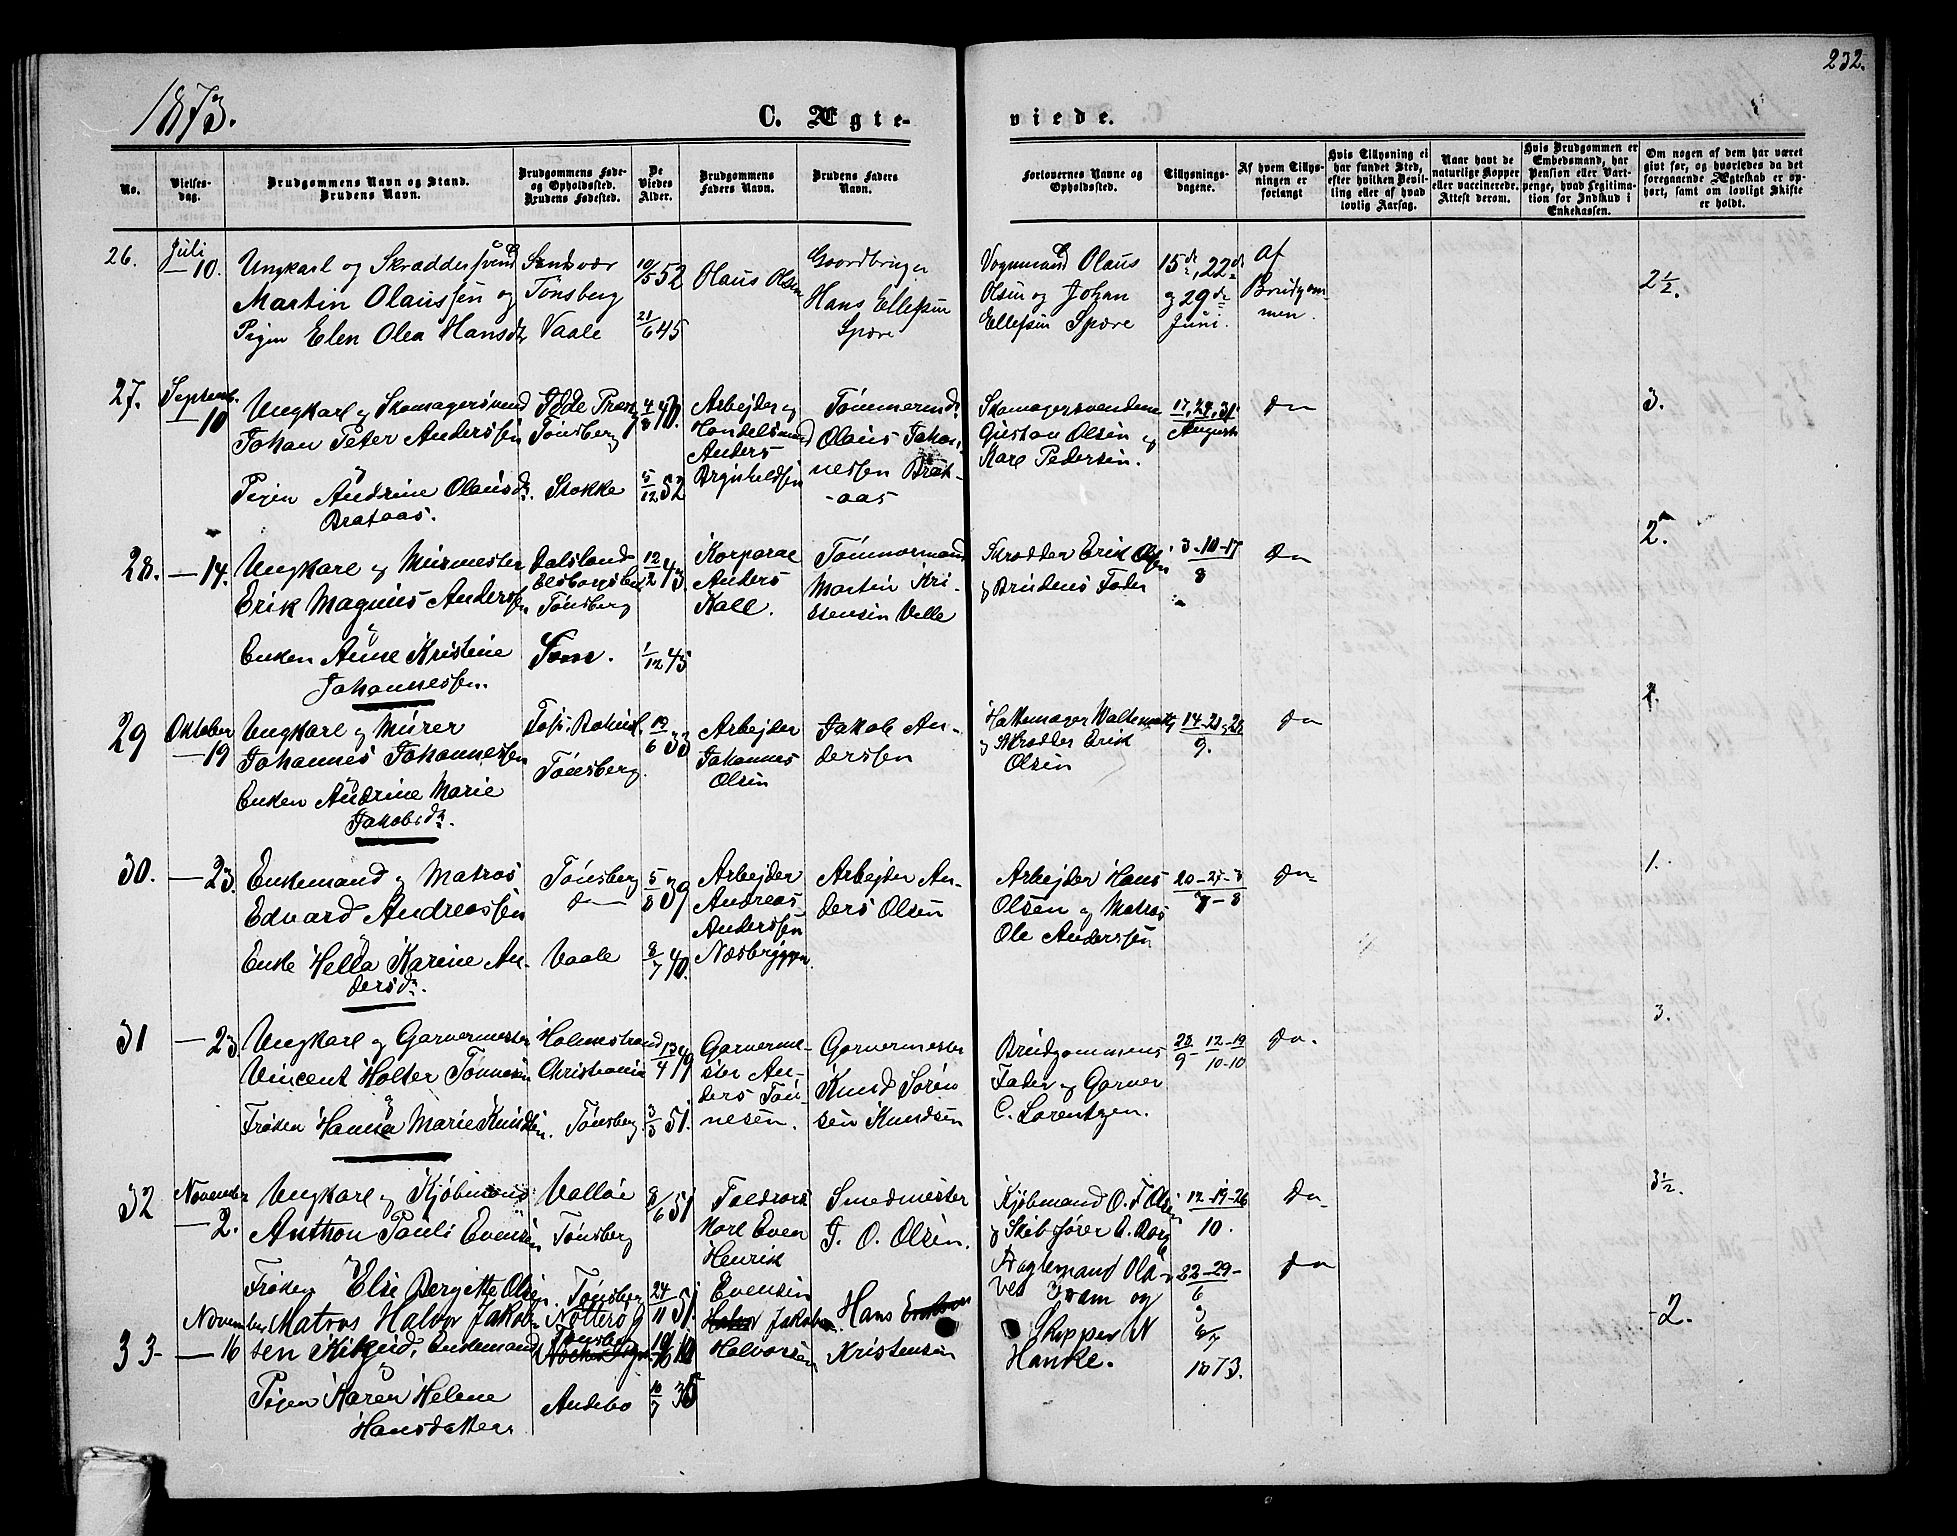 232.
1873.
C. Ægte-
viede.
No.
Vielses-
dag.
Brudgommens Navn og Stand.
Brudens Navn.
Brudgommens Føde-
og Opholdssted.
Brudens Fødested.
De
Viedes
Alder.
Brudgommens
Faders Navn.
Brudens Faders
Navn.
Forlovernes Navne og
Opholdssted.
Tillysnings-
dagene.
Af hvem Tillys-
ningen er
forlangt
Hvis Tillysning ei
har fundet Sted,
efter hvilken Bevil-
ling eller af hvad
lovlig Aarsag.
Naar havt de
naturlige Kopper
eller vaccinerede.
Attest derom.
Hvis Brudgommen er
Embedsmand, har
Pension eller Vart-
penge, hvad Legitima-
tion for Indskud i
Enkekassen.
Om nogen af dem har været
givt før, og hvorledes da det
foregaaende Ægteskab er op-
hørt, samt om lovligt Skifte
er holdt.
26.
Juli
— 10.
Ungkarl og Skræddersvend
Martin Olaussen og
Pigen Elen Olea Hansdr
Sandsvær
Tønsberg
Vaale
10/5 52
21/6 45
Olaus Olsen
Gaardbruger
Hans Ellefsen
Spøre
Vognmand Olaus
Olsen og Johan
Ellefsen Spøre
15de, 22de
og 29de
Juni.
Af
Brudgom-
men.
2½.
27.
Septemb.
— 10
Ungkarl og Skomagersvend
Johan Peter Anderssen
Pigen Andrine Olausdr.
Brataas.
Tønsberg
Stokke
5/12 52
Arbejder og
Handelsmand
Anders
Tømmermd.
Olaus Johan-
nessen Brat-
-aas
Skomagersvendene
Gustav Olsen og
Karl Pedersen.
17, 24, 31
August
Do
3.
28.
— 14.
Ungkarl og Murmester
Erik Magnus Anderssen
Enken Anne Kristine
Johannessen.
Dalsland
Elfsborgslen
Tønsberg
Sem.
12/2 43
1/12 45
Korporal
Anders
Kall.
Tømmermand
Martin Kri-
stensen Velle
Skrædder Erik Olsen
og Brudens Fader
3-10-17
8
Do
2.
29
Oktober
— 19
Ungkarl og Murer
Johannes Johannessen
Enken Andrine Marie
Jakobsdr.
Tønsberg.
19/6 33
Arbejder
Johannes
Olsen
Jakob An-
derssen
Hattemager
og Skrædder Erik
Olsen
14-21-28
9.
Do
1.
30.
— 23.
Enkemand og Matros
Edvard Andreassen
Enke Hella Karine An-
dersdr.
Tønsberg
do
Vaale
5/8 39
8/7 40.
Arbejder
Andreas
Anderssen
Næsbryggen
Arbejder An-
ders Olsen
Arbejder Hans
Olsen og Matros
Ole Anderssen
20-27-3
7-8
Do
1.
31
— 23
Ungkarl og Garvermester
Vincent Holter Tønnesen
Frøken Hanna Marie Knudsen.
Holmestrand
Christiania
Tønsberg
13/4 49
3/5 51.
Garverme-
ster An-
ders Tøn-
nesen.
Garvermester
Knud Søren
sen Knudsen
Brudgommens
Fader og Garver
C. Lorentzen.
28/9 - 12-19/10-10
Do.
3.
32
November
— 2.
Ungkarl og Kjøbmand
Anthon Pauli Evensen
Frøken Else Bergitte Olsen
Valløe
Tønsberg
Tønsberg
8/6 51
24/11 51.
Even
Henrik
Evensen
Smedmester
J. O. Olsen.
Kjøbmand O. F. Olsen
og Skibsfører A. Borg
12-19-26
10.
Do
3½.
33
November
— 16
Matros Halvor Jakob-
sen Enkemand
Pigen Karen Helene
Hansdatter
Nøtterø
Tønsberg
Andebo
10/7 36
Jakob
Halvorsen
Hans
Kristensen
ved Fram og
Skipper N
Hanke.
22-29-
6
6/7
1873.
Do
-2.